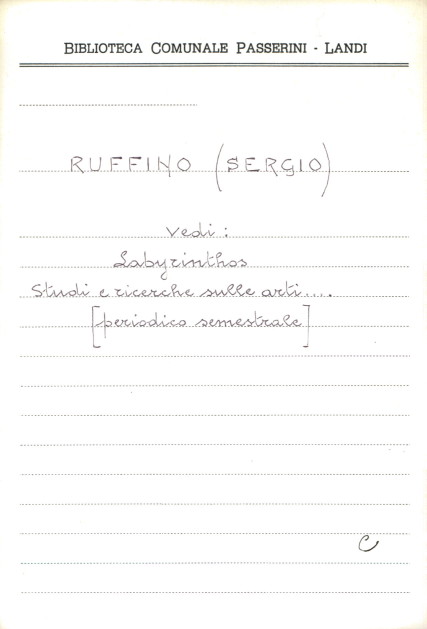 BIBLIOTECA COMUNALE PASSERINI - LANDI
RUFFINO (SERGIO)
Vedi:
Labyrinthos
Studi e ricerche sulle arti....
[periodico semestrale]
C